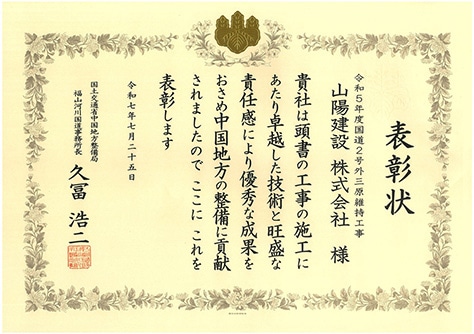 表彰状
令和5年度国道2号外三原維持工事
山陽建設 株式会社 様
貴社は頭書の工事の施工に
あたり卓越した技術と旺盛な
責任感により優秀な成果を
おさめ中国地方の整備に貢献
されましたので ここに これを
表彰します
令和七年七月二十五日
国土交通省中国地方整備局
福山河川国道事務所長
久冨 浩二